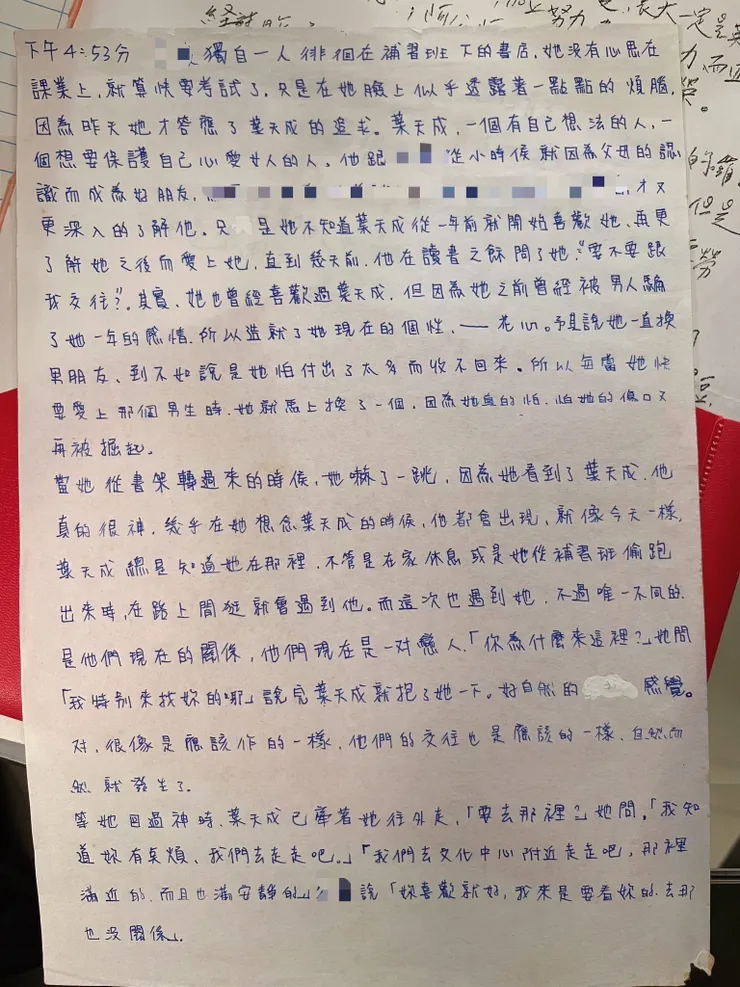 下午4:53分 獨自一人徘徊在補習班下的書店,她沒有心思在
課業上,就算快要考試了,只是在她臉上似乎透露著一點點的煩腦,
因為昨天她才答應了葉天成的追求。葉天成,一個有自己想法的人,一
個想要保護自己心愛女人的人。他跟 從小時候就因為父母的認
識而成為好朋友, 才又
更深入的了解他。只 是她不知道葉天成從一年前就開始喜歡她、再更
了解她之後而愛上她,直到幾天前,他在讀書之餘問了她,"要不要跟
我交往?"。其實、她也曾經喜歡過葉天成,但因為她之前曾經被男人騙
了她一年的感情,所以造就了她現在的個性,——花心。與其說她一直換
男朋友、到不如說是她怕付出了太多而收不回來。所以每當她快
要愛上那個男生時,她就馬上換了一個,因為她真的怕,怕她的傷口又
再被掘起。
當她從書架轉過來的時候,她嚇了一跳,因為她看到了葉天成,他
真的很神,幾乎在她想念葉天成的時候,他都會出現、就像今天一樣,
葉天成總是知道她在那裡,不管是在家休息或是她從補習班偷跑
出來時,在路上閒逛就會遇到他。而這次也遇到她,不過唯一不同的,
是他們現在的關係,他們現在是一对戀人,「你為什麼來這裡?」她問
「我特別來找妳的耶」說完葉天成就抱了她一下。好自然的 感覺。
对,很像是應該作的一樣,他們的交往也是應該的一樣、自然而
然就發生了。
等她回過神時、葉天成已牽著她往外走,「要去那裡?」她問,「我知
道妳有桌煩、我們去走走吧。」「我們去文化中心附近走走吧,那裡
滿近的,而且也滿安靜的」 說「妳喜歡就好,我來是要看妳的,去那
也沒關係」.